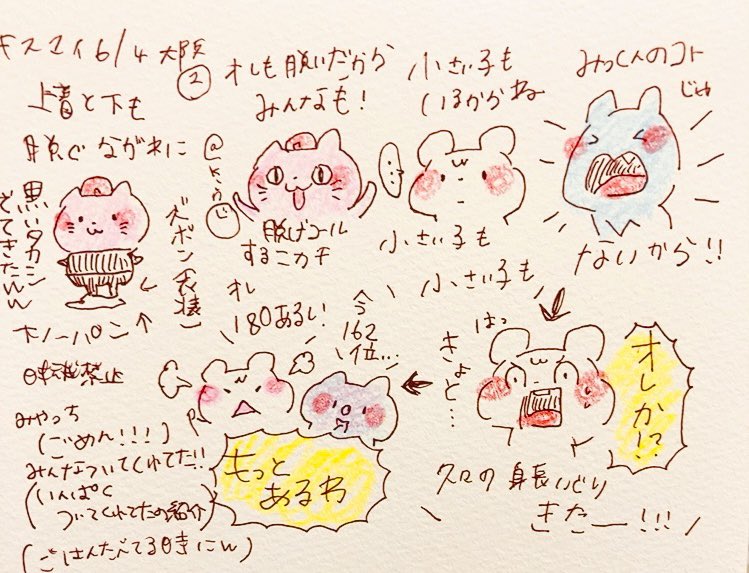 キスマイ6/4大阪
②
上着と下も
脱ぐながれに
黒いタカシ
でてきたww
ズボン(衣装)
ノーパン
転載禁止
オレも脱いだから
みんなも!
脱げコール
するニカチ
小さい子も
いるからね
みっくんのコト
じゃ
ないから!!
小さい子も
小さい子も
はっ
きょと…
オレか!?
久々の身長いじり
きたー!!!
オレ
180あるい!
今
162
位…
もっと
あるわ
みやっち
(ごめん!!!)
みんなついてくれてた!!
ついてくれてたの紹介)
(ごはんたべてる時にw)